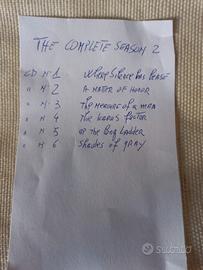 THE COMPLETE SEASON 2
CD N 1 Where Silence has lease
" N 2 A MATER OF HONOR
" N 3 The MEASURE of A MAN
" N 4 The ICARUS FACTOR
" N 5 UP The Long LADDER
" N 6 ShADES of GRAY
Subito